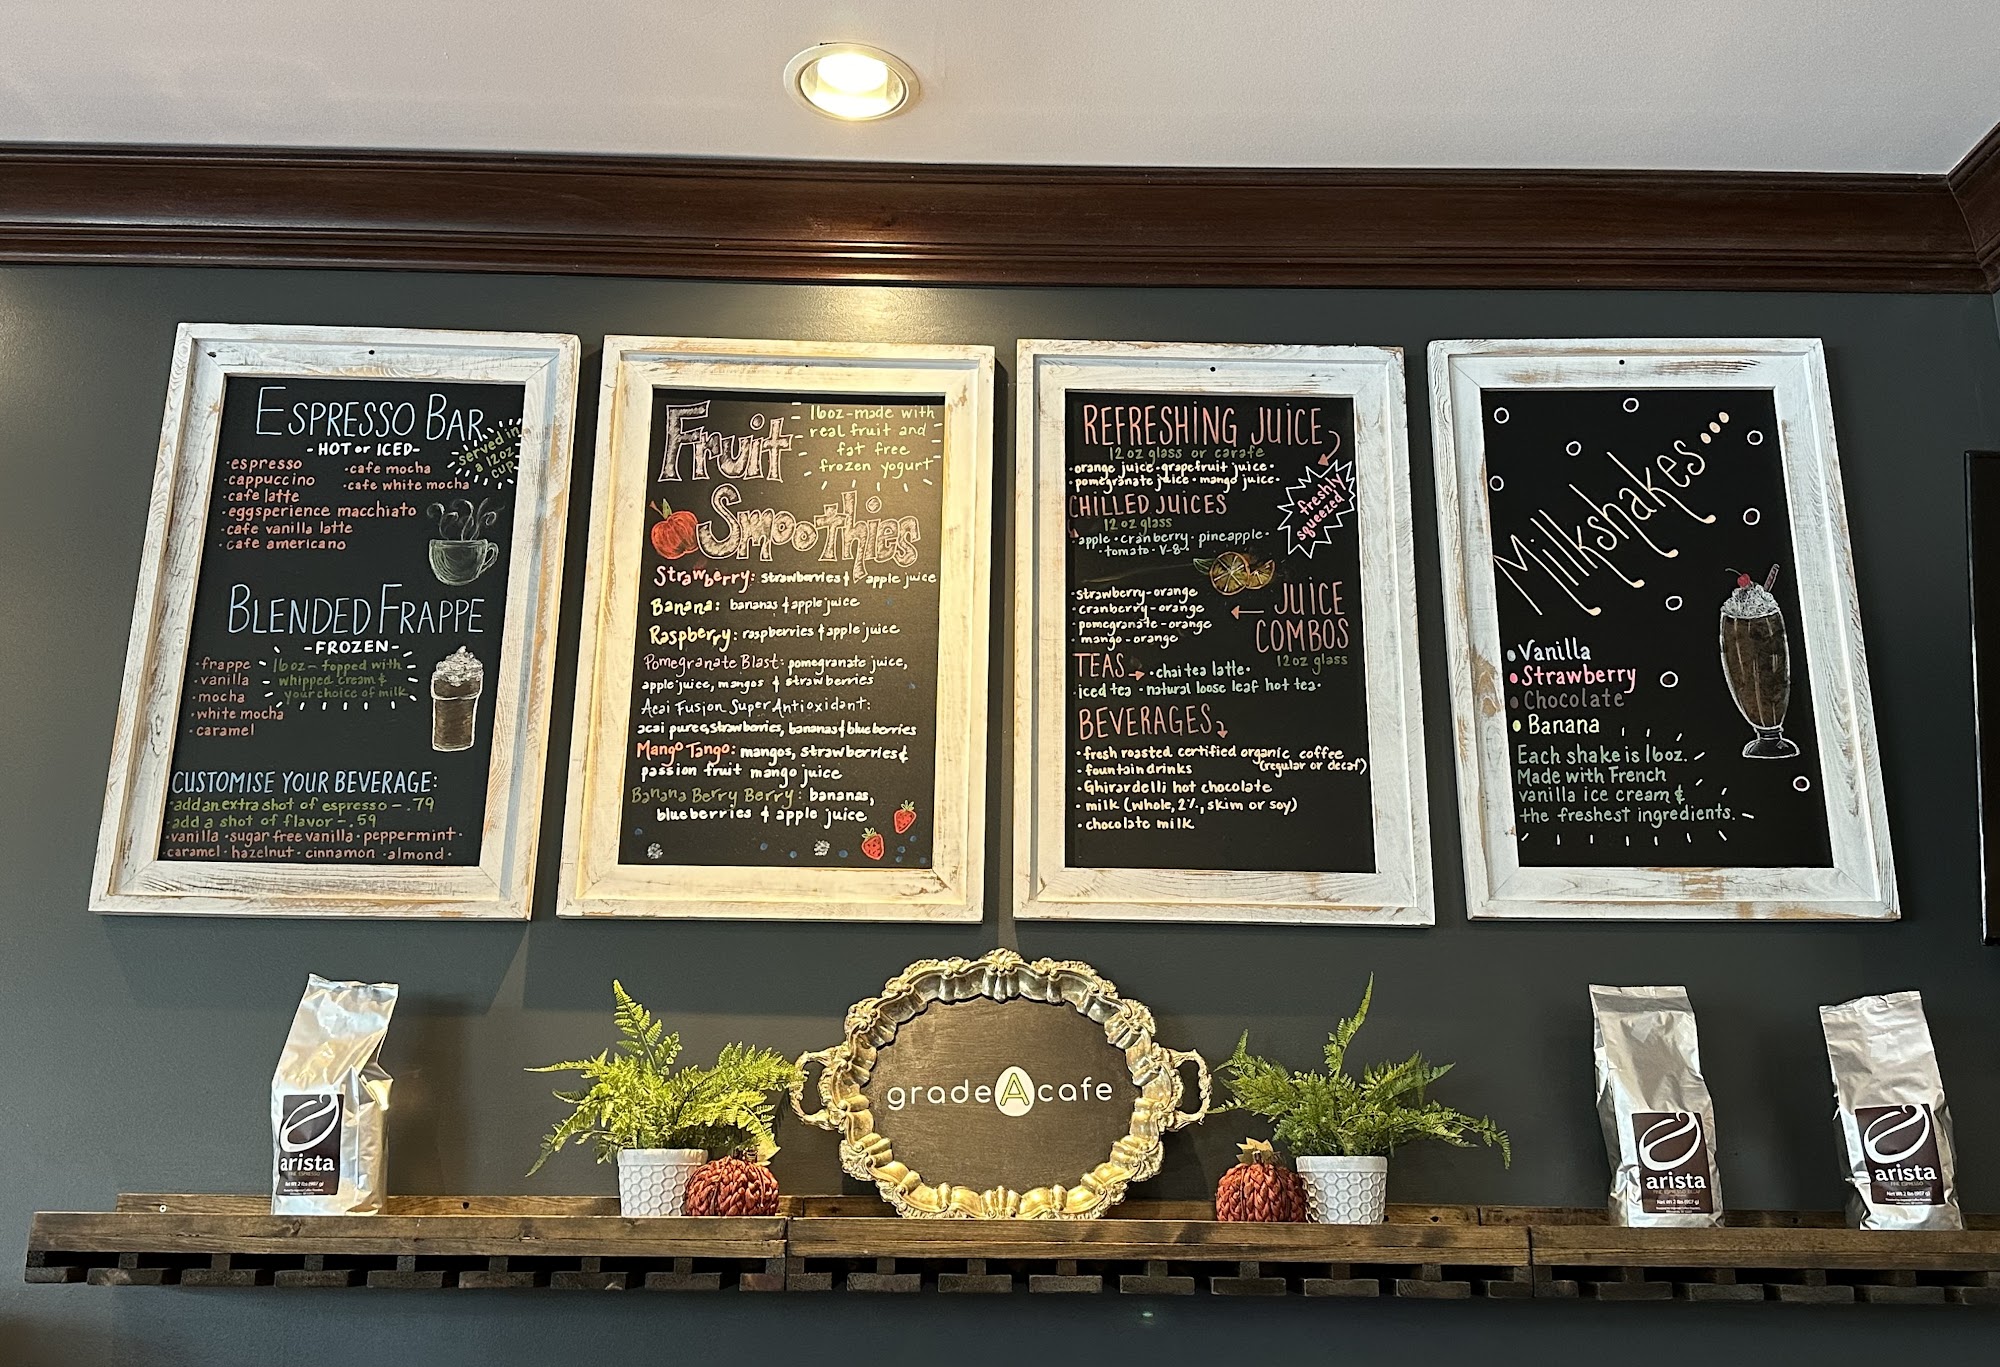 ESPRESSO BAR
-HOT or ICED-
served in
a 12oz
cup
·espresso
·cappuccino
·cafe latte
·eggsperience macchiato
·cafe vanilla latte
·cafe americano
·cafe mocha
·cafe white mocha
BLENDED FRAPPE
-FROZEN-
·frappe
·vanilla
·mocha
·white mocha
·caramel
16oz- topped with
whipped cream &
your choice of milk
CUSTOMISE YOUR BEVERAGE:
·add an extra shot of espresso - .79
·add a shot of flavor - .59
·vanilla ·sugar free vanilla · peppermint·
·caramel· hazelnut· cinnamon ·almond·
Fruit
Smoothies
16oz-made with
real fruit and
fat free
frozen yogurt
Strawberry: strawberries & apple juice
Banana: bananas & apple juice
Raspberry: raspberries & apple juice
Pomegranate Blast: pomegranate juice,
apple juice, mangos & strawberries
Acai Fusion Super Antioxidant:
acai puree, strawberries, bananas & blueberries
Mango Tango: mangos, strawberries &
passion fruit mango juice
Banana Berry Berry: bananas,
blueberries & apple juice
REFRESHING JUICE
12oz glass or carafe
·orange juice·grapefruit juice·
·pomegranate juice · mango juice·
freshly
squeezed
CHILLED JUICES
12 oz glass
·apple · cranberry · pineapple·
·tomato · V-8·
·strawberry-orange
·cranberry-orange
·pomegranate-orange
·mango-orange
JUICE
COMBOS
12oz glass
TEAS → ·chai tea latte·
·iced tea · natural loose leaf hot tea·
BEVERAGES
·fresh roasted certified organic coffee
(regular or decaf)
·fountain drinks
·Ghirardelli hot chocolate
·milk (whole, 2%, skim or soy)
·chocolate milk
Milkshakes....
•Vanilla
•Strawberry
•Chocolate
•Banana
Each shake is 16oz.
Made with French
vanilla ice cream &
the freshest ingredients.
gradeAcafe
arista
FINE ESPRESSO
Net Wt 2 lbs (907 g)
arista
FINE ESPRESSO DECAF
Net Wt 2 lbs (907 g)
arista
FINE ESPRESSO
Net Wt 2 lbs (907 g)